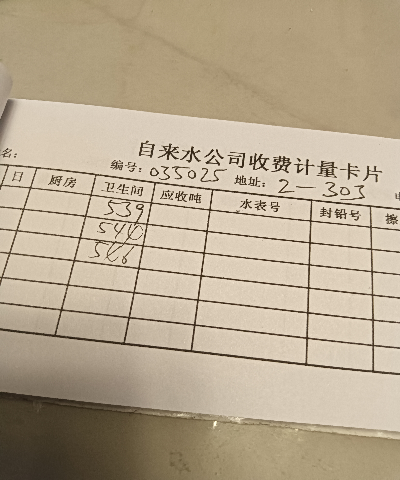 自来水公司收费计量卡片
名: 编号: 035025 地址: 2-303
日 厨房 卫生间 应收吨 水表号 封铅号
539
540
566